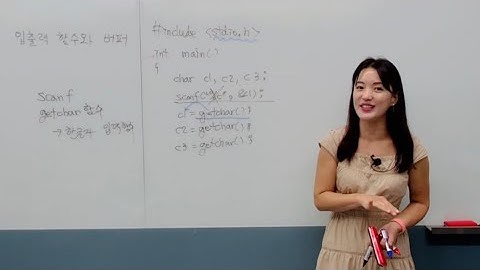 입출력 함수와 버퍼
scanf
getchar 함수
→ 한글자 입력받
#include <stdin.h>
int main()
{
char c1, c2, c3;
scanf("%c", &c1);
c1 = getchar();
c2 = getchar();
c3 = getchar();